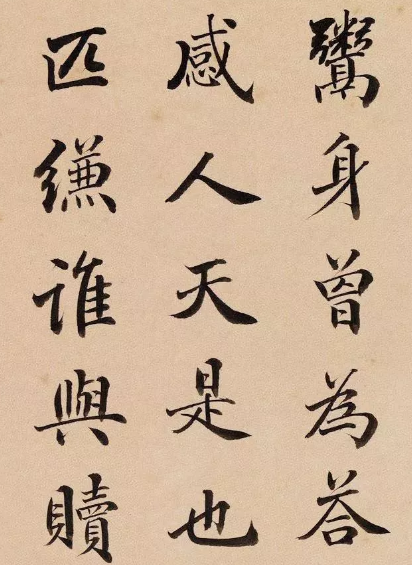 鬻身曾為荅
感人天是也
匹縑誰與贖